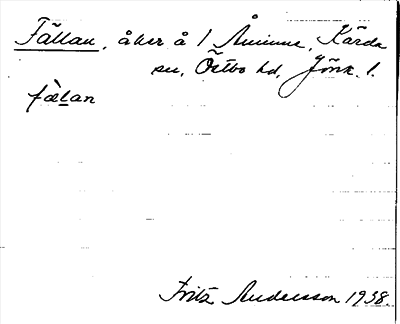 Fällan, åker å 1 Ånimne, Kärda
sn, Östbo hd, Jönk. l.
fä̀lan
Fritz Andersson 1938.